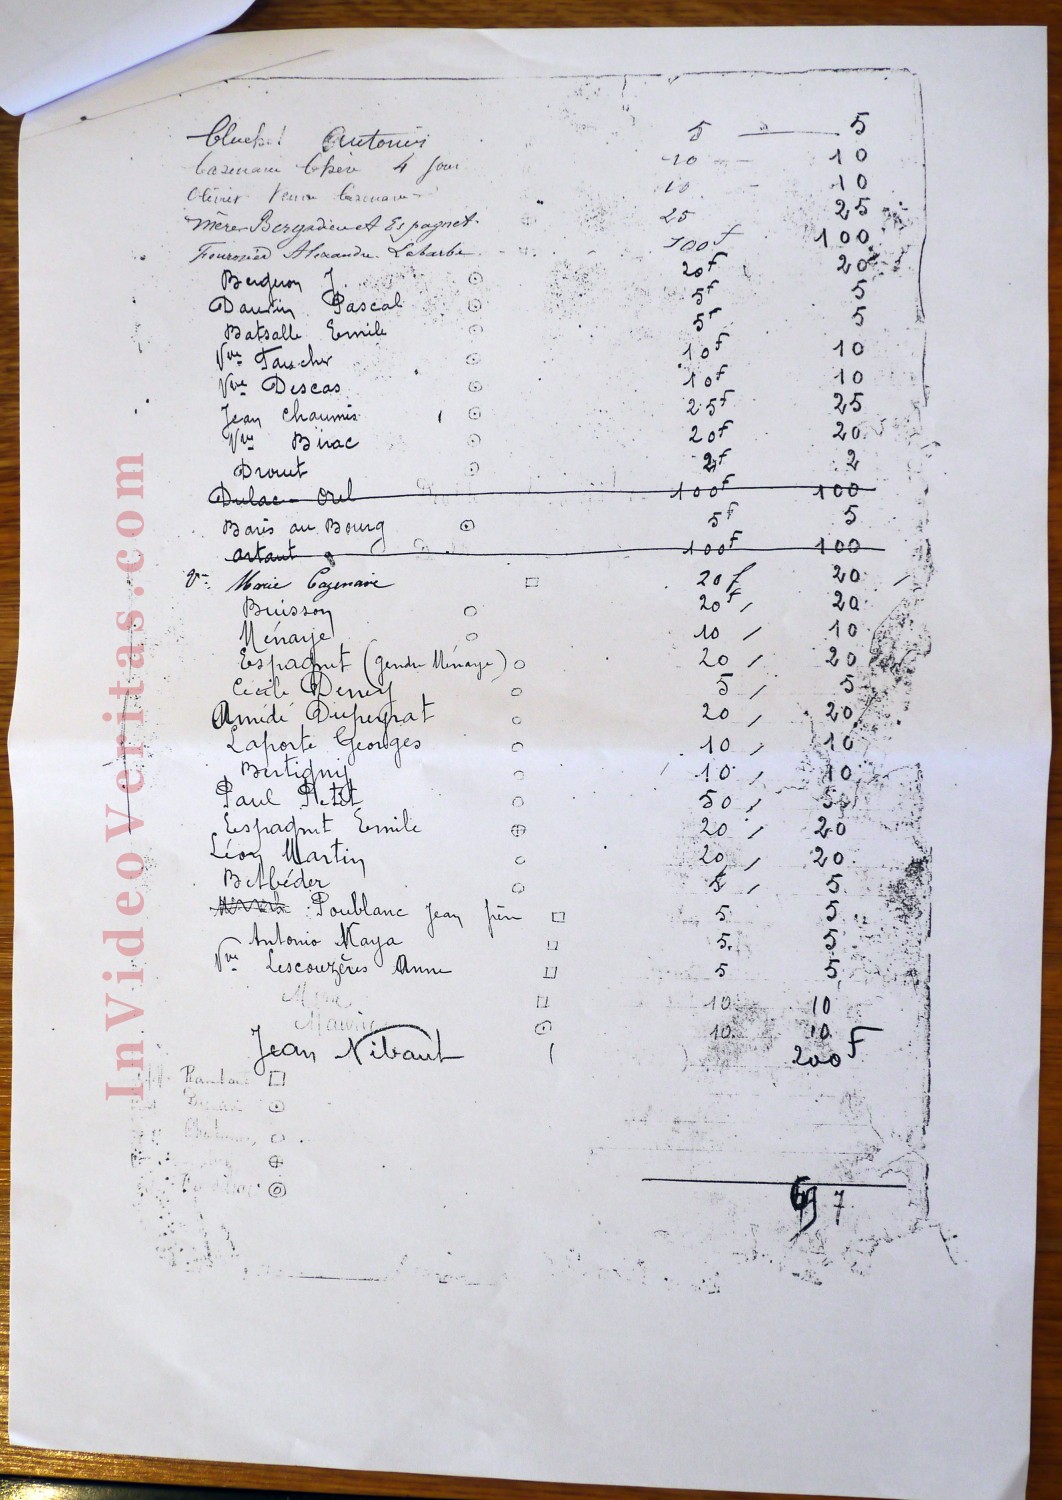 Antonin 5 5
4 10 10
Olivier 10 10
Mère Bergadieu et Espagnet 25 25
Alexandre Labarbe 100f 100
Berguon J. 20f 20
Daurin Pascal 5f 5
Batsalle Emile 5f 5
Vve Faucher 10f 10
Vve Descas 10f 10
Jean Chaumis 25f 25
Vve Birac 20f 20
Drouet 2f 2
Dulac 100f 100
Baris au Bourg 5f 5
Artaut 100f 100
Vve Marie Cazenave 20f 20
Buisson 20f, 20
Ménage 10 / 10
Espagnet (gendre Ménage) 20 / 20
Cécile 5 / 5
Amédé Dupeyrat 20 / 20
Laporte Georges 10 / 10
Bertigny 10 / 10
Paul Petit 50 / 50
Espagnet Emile 20 / 20
Léon Martin 20 / 20
Belbéder 5 / 5
Poublanc Jean 5 5
Antonio Maya 5. 5
Vve Lescouzères Anne 5 5
10 10
Maurice 10 10
Jean Nibaut ( ) 200f
697
InVideoVeritas.com